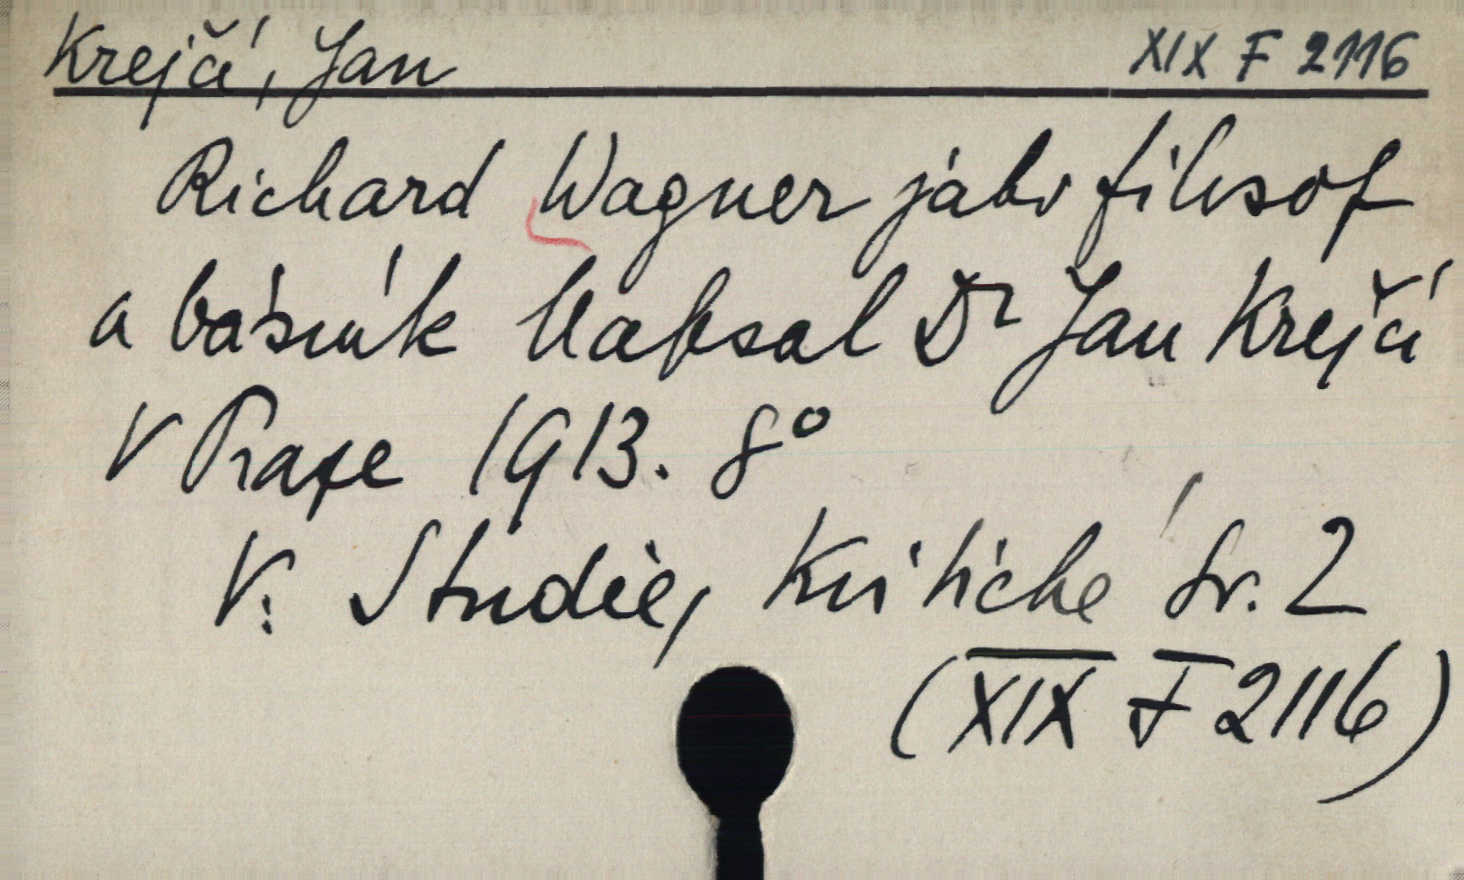 Krejčí, Jan XIX F 2116
Richard Wagner jako filosof
a básník Napsal Dr Jan Krejčí
V Praze 1913. 8°
V: Studie, Kritické Sv. 2
(XIX F 2116)